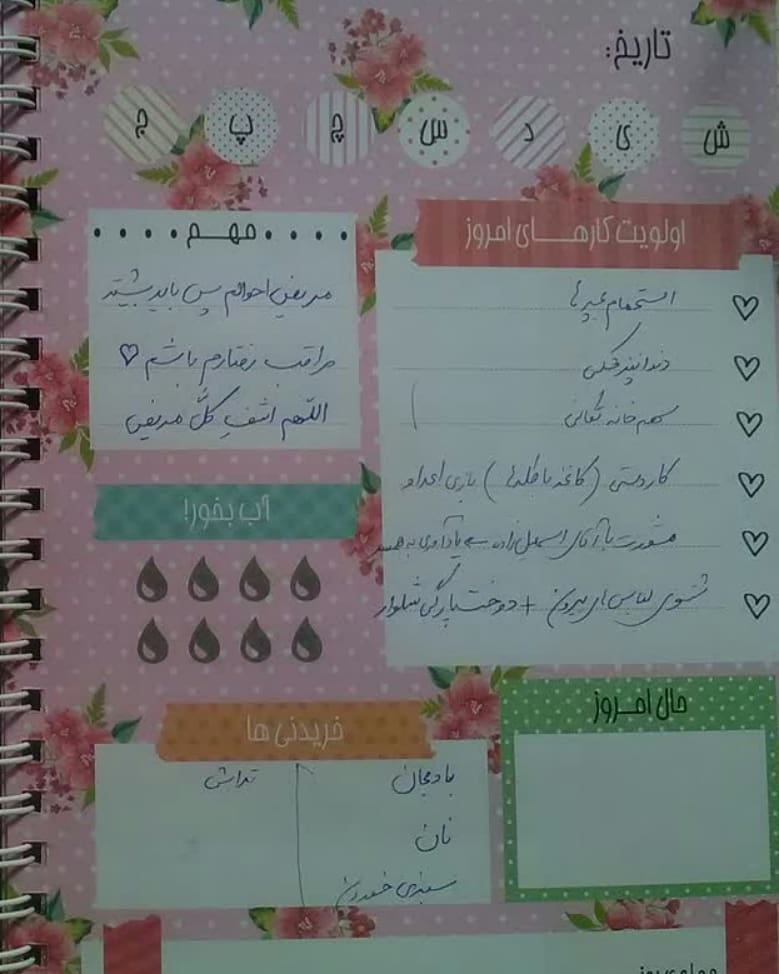 تاریخ:
ش ی د س چ پ ج
اولویت کارهای امروز
استحمام بچه‌ها
دندانپزشکی
سهم خانه تکانی
کاردستی (کاغذ باطله‌ها) بازی اعداد
مشورت با آقای اسمعیل‌زاده
شستشوی لباس‌های بیرون + دوخت پارگی شلوار
مهم
مریض‌احوالم پس باید بیشتر
مراقب رفتارم باشم ♡
اللهم اشف کل مریض
آب بخور!
خریدنی ها
بادمجان
نان
سبزی خوردن
تراش
حال امروز